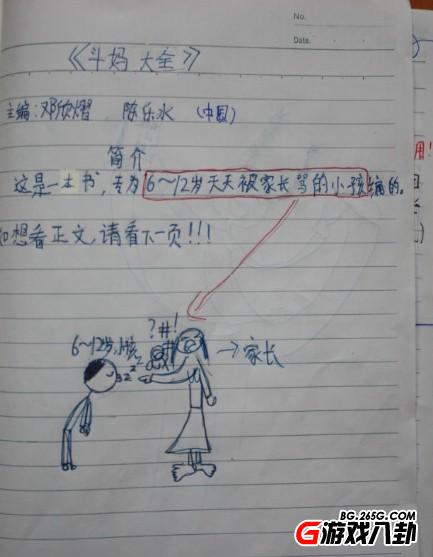 No.
Date.
《斗妈大全》
主编:邓欣熠 陈乐水 (中国)
简介
这是一本书,专为6~12岁天天被家长骂的小孩编的。
想看正文,请看下一页!!!
?#!
6~12岁小孩
→家长
用!
BG.265G.COM
G游戏八卦